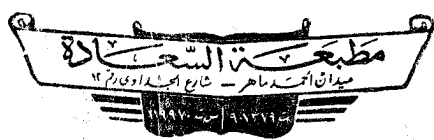 مطبعة السعادة
ميدان أحمد ماهر – شارع الجداوى رقم ١٢